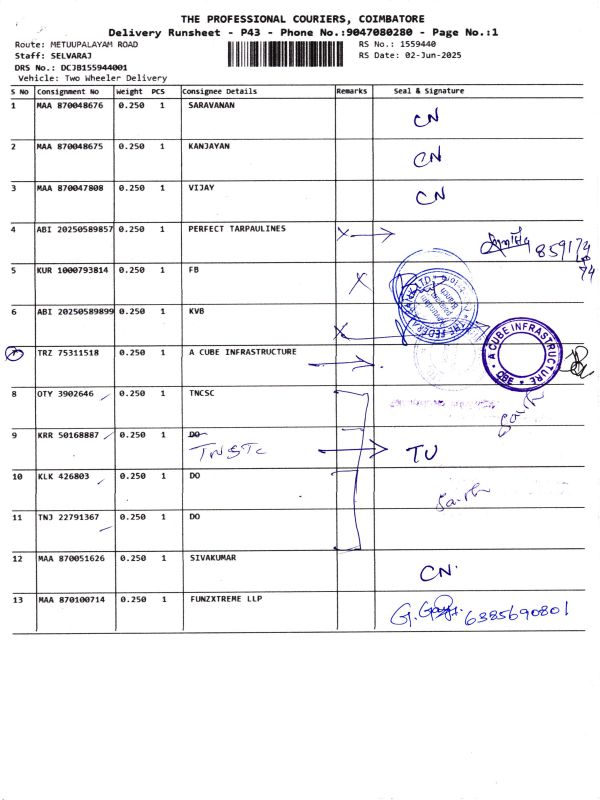 THE PROFESSIONAL COURIERS, COIMBATORE
Delivery Runsheet - P43 - Phone No.:9047080280 - Page No.:1
Route: METUUPALAYAM ROAD RS No.: 1559440
Staff: SELVARAJ RS Date: 02-Jun-2025
DRS No.: DCJB155944001
Vehicle: Two Wheeler Delivery
S No Consignment No Weight PCS Consignee Details Remarks Seal & Signature
1 MAA 870048676 0.250 1 SARAVANAN CN
2 MAA 870048675 0.250 1 KANJAYAN CN
3 MAA 870047808 0.250 1 VIJAY CN
4 ABI 20250589857 0.250 1 PERFECT TARPAULINES X
859174
74
5 KUR 1000793814 0.250 1 FB X
6 ABI 20250589899 0.250 1 KVB X
THE FEDERAL BANK LTD
A CUBE INFRASTRUCTURE
7 TRZ 75311518 0.250 1 A CUBE INFRASTRUCTURE
8 OTY 3902646 0.250 1 TNCSC
9 KRR 50168887 0.250 1 DO
TNSTC TU
10 KLK 426803 0.250 1 DO
11 TNJ 22791367 0.250 1 DO
12 MAA 870051626 0.250 1 SIVAKUMAR CN.
13 MAA 870100714 0.250 1 FUNZXTREME LLP 6385690801